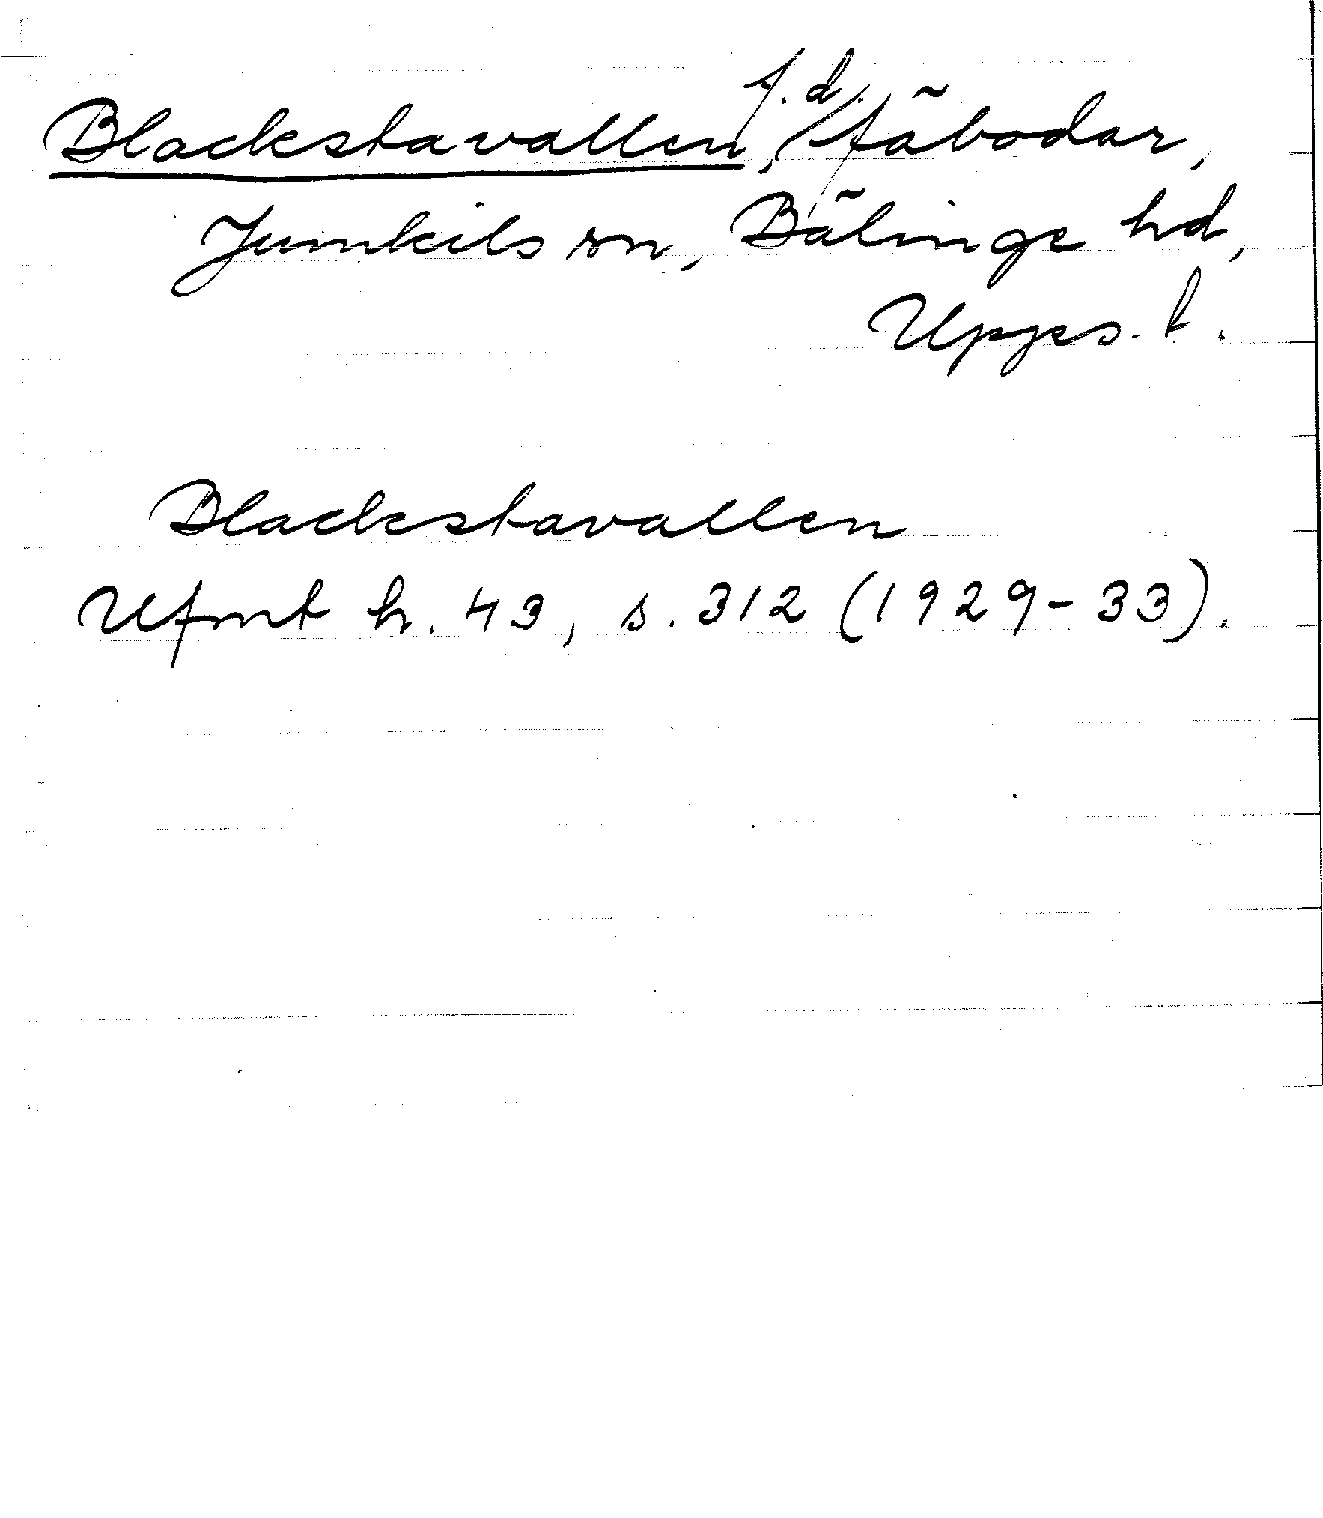 Blackstavallen, f.d. fäbodar,
Jumkils sn, Bälinge hd,
Upps. l.
Blackstavallen
Ufmt h. 43, s. 312 (1929-33).